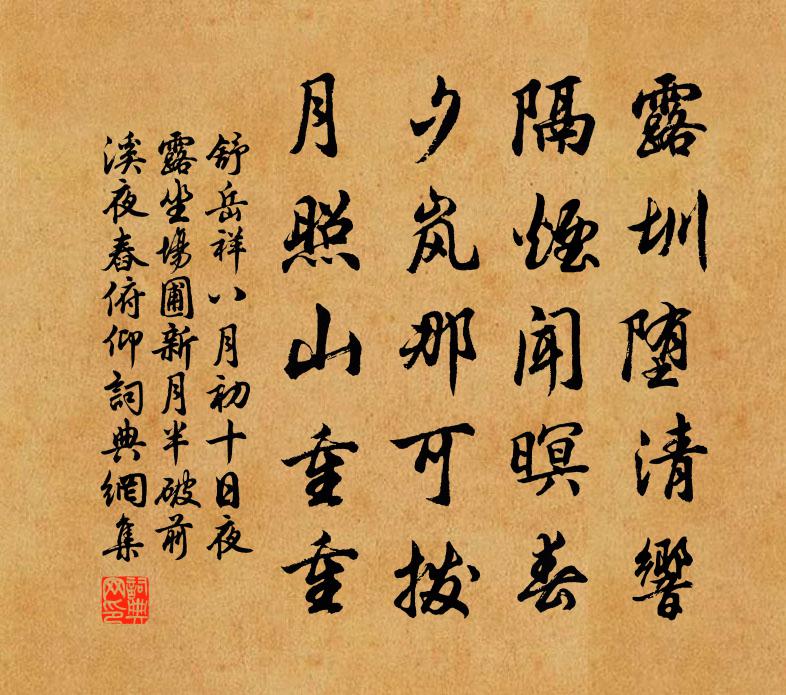 露圳堕清響
隔煙聞暝舂
夕岚那可拨
月照山重重
舒岳祥八月初十日夜
露坐場圃新月半破前
溪夜舂俯仰詞典網集
詞典
网印